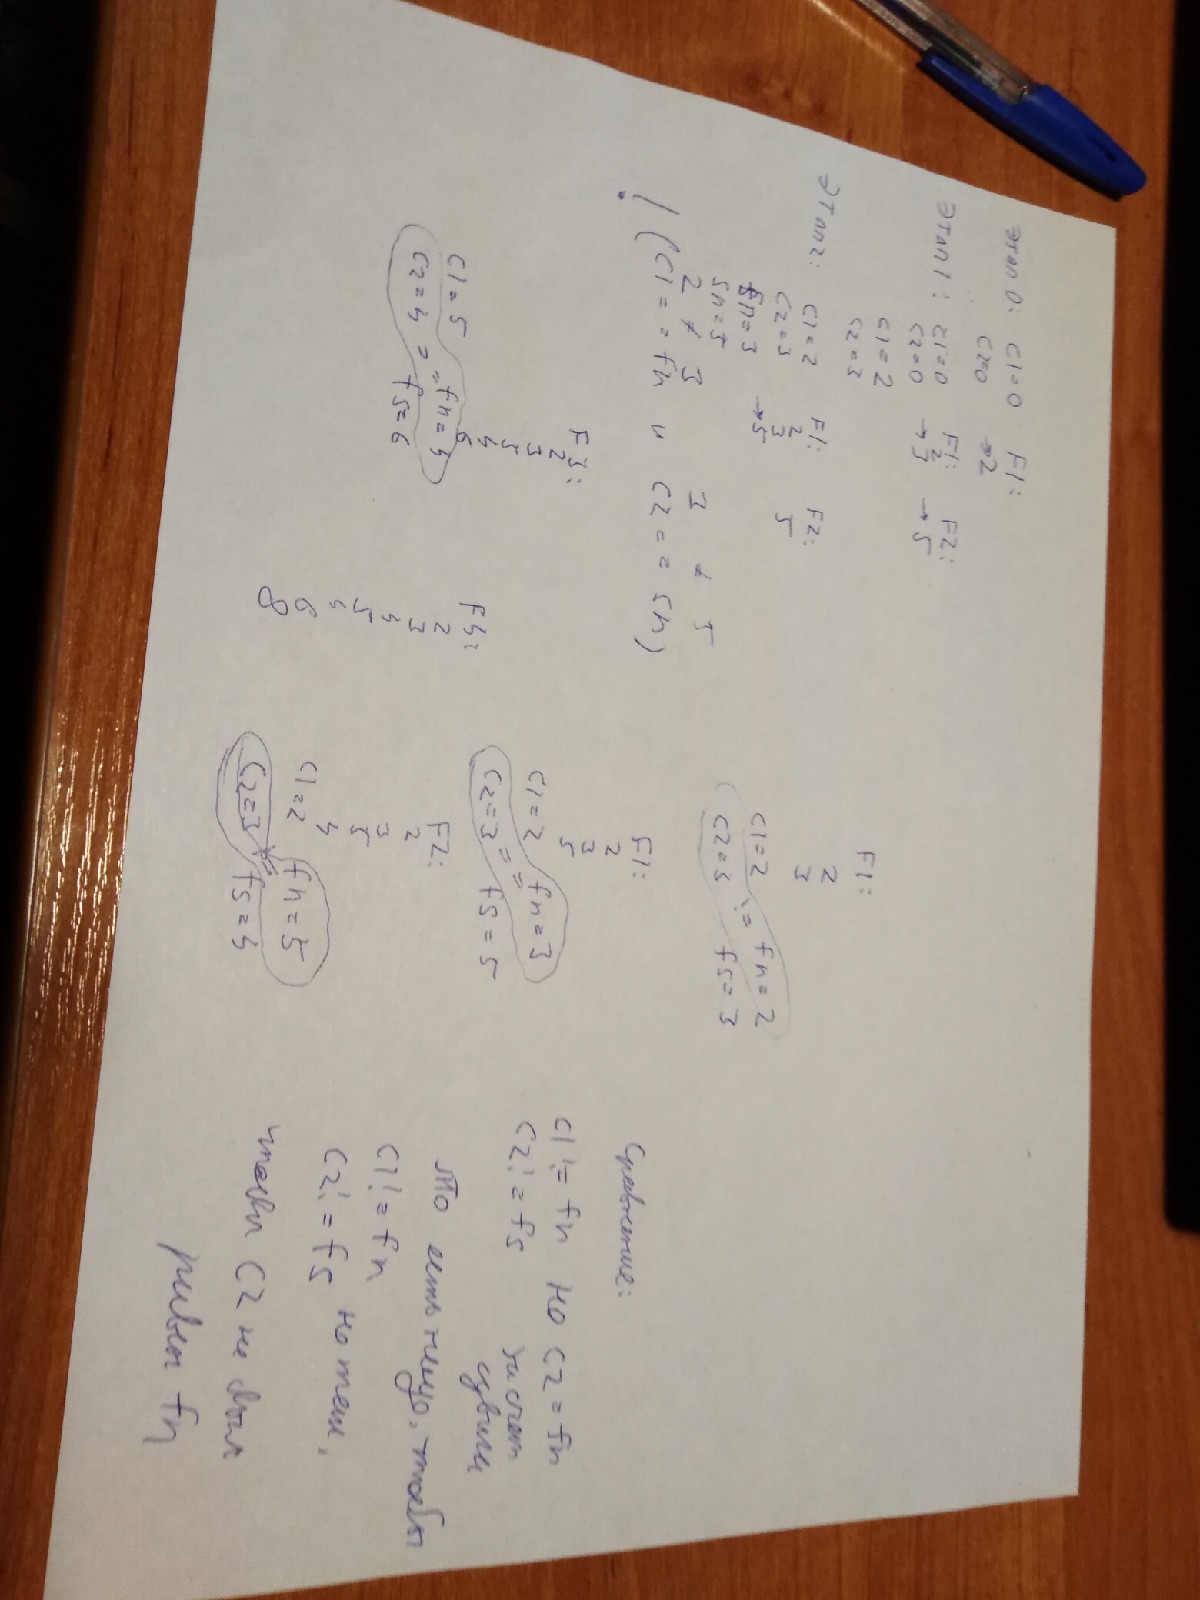 Этап 0: C1=0 F1:
C2=0 →2
Этап 1: C1=0 F1: F2:
2
C2=0 →3 →5
C1=2
C2=3
Этап 2: C1=2 F1: F2:
C2=3 2 5
3
fn=3 →5
sn=5
2 ≠ 3 3 ≠ 5
! (C1 == fn и C2 == sn)
F3:
2
3
5
6
C1=5 fn=
C2= = fs=6
2
3
5
6
8
F1:
2
3
C1=2 fn=2
C2=3 != fs=3
F1:
2
3
5
C1=2 fn=3
C2=3 == fs=5
F2:
2
3
5
C1=2 fn=5
C2=3 fs=
Сравнение:
C1 != fn но C2 = fn
C2 != fs за счет
сдвига
то есть надо, чтобы
C1 != fn
C2 != fs но так,
чтобы C2 не был
равен fn